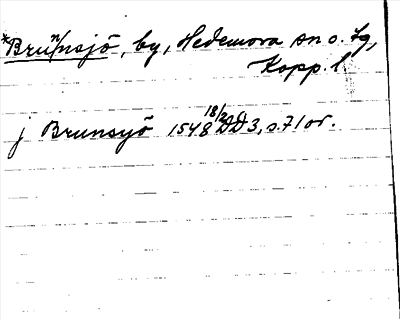 *Brun/nsjö, by, Hedemora sn o. tg,
Kopp. l
j Brunsyö 1548 18/2 DD3, s. 71 or.